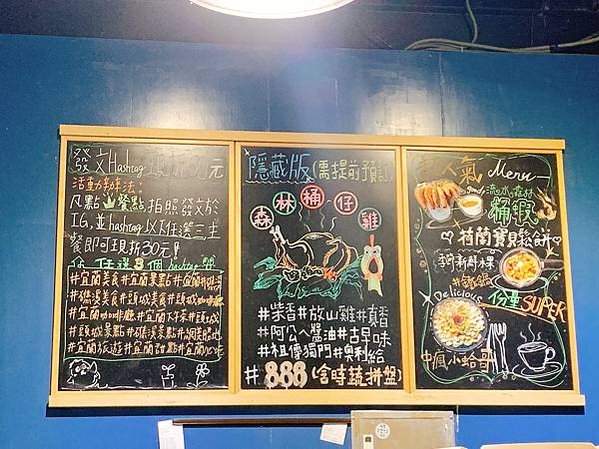 發文Hashtag現折30元
活動辦法:
凡點餐點拍照發文於
IG,並hashtag以下任選三主
餐即可現折30元!
任選3個hashtag
#宜蘭美食#宜蘭景點#宜蘭
#礁溪美食#頭城美食#頭城
#宜蘭咖啡廳#宜蘭下午茶#頭城
#頭城景點#礁溪景點#網美
#宜蘭旅遊#宜蘭甜點#宜蘭
隱藏版(需提前預訂)
森林桶仔雞
#柴香#放山雞#真香
#阿公ㄟ醬油#古早味
#祖傳獨門#奧利給
#888(含時蔬拼盤)
人氣 Menu
桶蝦
荷蘭寶貝鬆餅
季節新鮮水果
Delicious
份量SUPER
中瘋小蛤哥